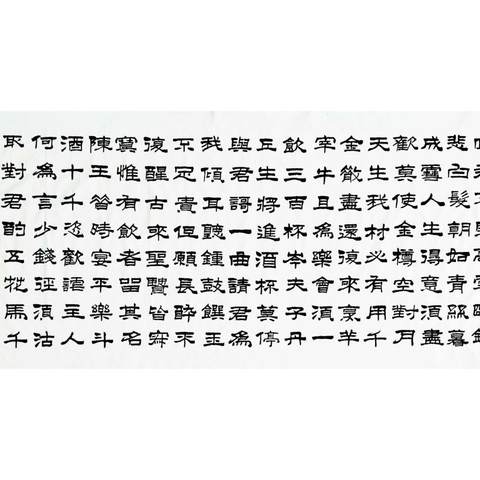 悲白髮朝如青絲暮
成雪人生得意須盡
歡莫使金樽空對月
天生我材必有用千
金散盡還復來烹羊
宰牛且為樂會須一
飲三百杯岑夫子丹
丘生將進酒杯莫停
與君歌一曲請君為
我傾耳聽鍾鼓饌玉
不足貴但願長醉不
復醒古來聖賢皆寂
寞惟有飲者留其名
陳王昔時宴平樂斗
酒十千恣歡謔主人
何為言少錢徑須沽
取對君酌五花馬千